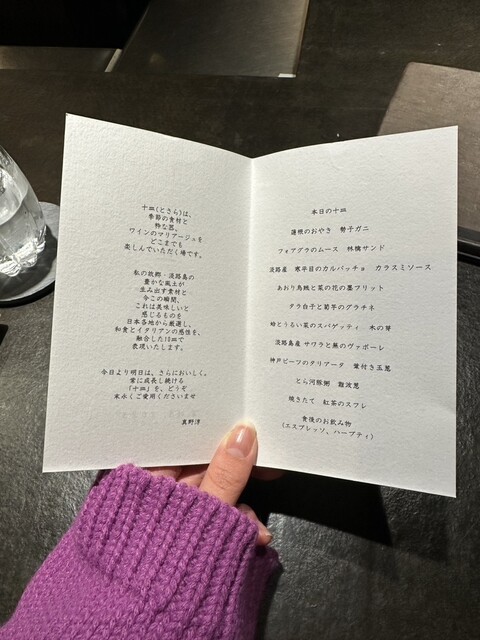 十皿(とさら)は、
季節の食材と
粋な器、
ワインのマリアージュを
どこまでも
楽しんでいただく場です。
私の故郷・淡路島の
豊かな風土が
生み出す素材と
今この瞬間、
これは美味しいと
感じるものを
日本各地から厳選し、
和食とイタリアンの感性を、
融合した10皿で
表現いたします。
今日より明日は、さらにおいしく。
常に成長し続ける
「十皿」を、どうぞ
末永くご愛用くださいませ
真野淳
本日の十皿
蓮根のおやき 勢子ガニ
フォアグラのムース 林檎サンド
淡路産 寒平目のカルパッチョ カラスミソース
あおり烏賊と菜の花の墨フリット
タラ白子と菊芋のグラチネ
蛤とうるい菜のスパゲッティ 木の芽
淡路島産サワラと蕪のヴァポーレ
神戸ビーフのタリアータ 葉付き玉葱
とら河豚粥 難波葱
焼きたて 紅茶のスフレ
食後のお飲み物
(エスプレッソ、ハーブティ)